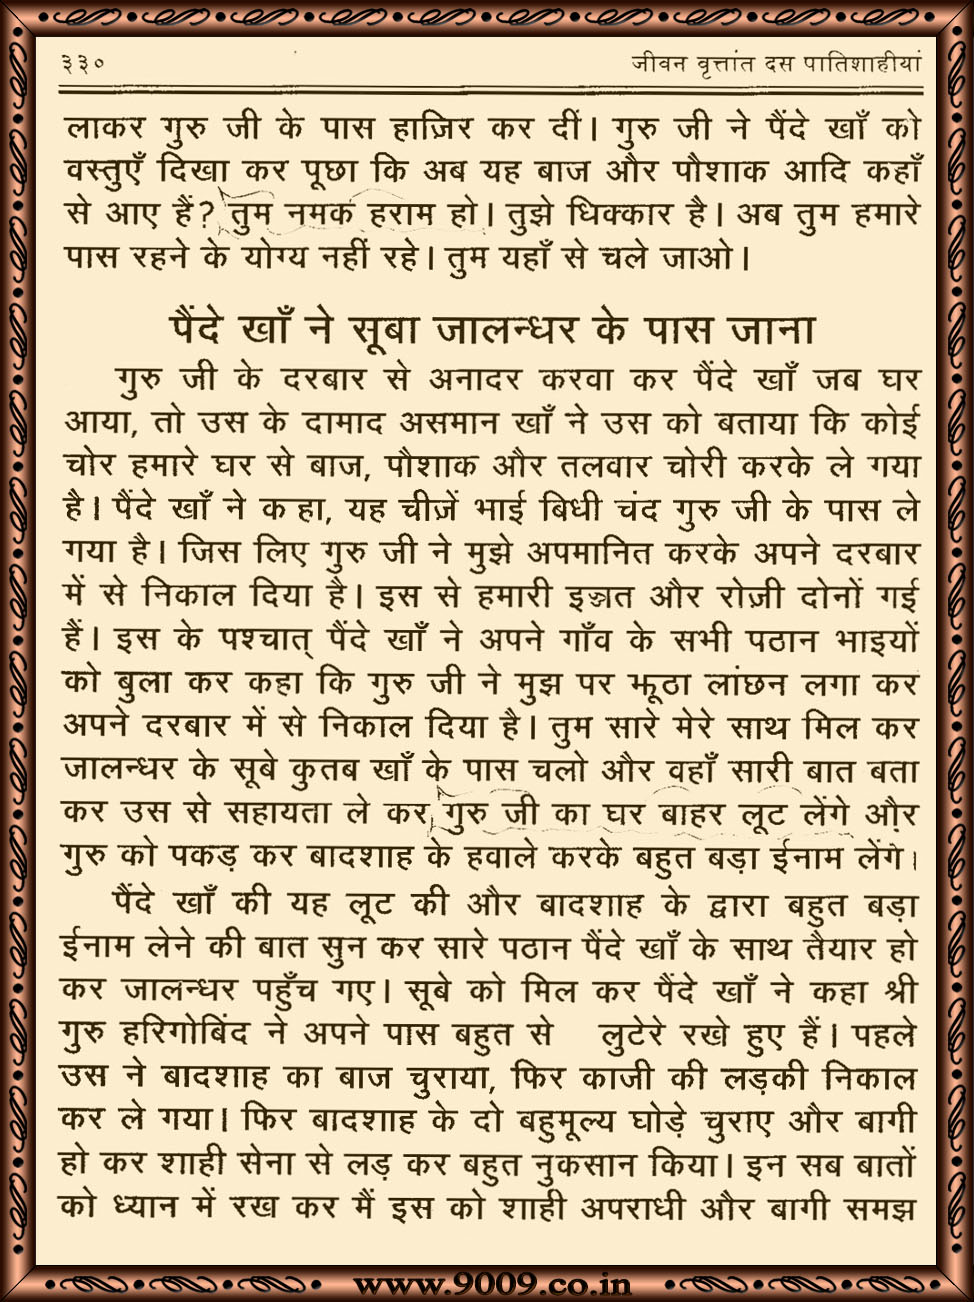 ३३०
जीवन वृत्तांत दस पातिशाहीयां
लाकर गुरु जी के पास हाज़िर कर दीं। गुरु जी ने पैंदे खाँ को
वस्तुएँ दिखा कर पूछा कि अब यह बाज और पौशाक आदि कहाँ
से आए हैं? तुम नमक हराम हो। तुझे धिक्कार है। अब तुम हमारे
पास रहने के योग्य नहीं रहे। तुम यहाँ से चले जाओ।
पैंदे खाँ ने सूबा जालन्धर के पास जाना
गुरु जी के दरबार से अनादर करवा कर पैंदे खाँ जब घर
आया, तो उस के दामाद असमान खाँ ने उस को बताया कि कोई
चोर हमारे घर से बाज, पौशाक और तलवार चोरी करके ले गया
है। पैंदे खाँ ने क हा, यह चीज़ें भाई बिधी चंद गुरु जी के पास ले
गया है। जिस लिए गुरु जी ने मुझे अपमानित करके अपने दरबार
में से निकाल दिया है। इस से हमारी इज्जत और रोज़ी दोनों गई
हैं। इस के पश्चात् पैंदे खाँ ने अपने गाँव के सभी पठान भाइयों
को बुला कर कहा कि गुरु जी ने मुझ पर झूठा लांछन लगा कर
अपने दरबार में से निकाल दिया है। तुम सारे मेरे साथ मिल कर
जालन्धर के सूबे कुतब खाँ के पास चलो और वहाँ सारी बात बता
कर उस से सहायता ले कर गुरु जी का घर बाहर लूट लेंगे और
गुरु को पकड़ कर बादशाह के हवाले करके बहुत बड़ा ईनाम लेंगे।
पैंदे खाँ की यह लूट की और बादशाह के द्वारा बहुत बड़ा
ईनाम लेने की बात सुन कर सारे पठान पैंदे खाँ के साथ तैयार हो
कर जालन्धर पहुँच गए। सूबे को मिल कर पैंदे खाँ ने कहा श्री
गुरु हरिगोबिंद ने अपने पास बहुत से लुटेरे रखे हुए हैं। पहले
उस ने बादशाह का बाज चुराया, फिर काजी की लड़की निकाल
कर ले गया। फिर बादशाह के दो बहुमूल्य घोड़े चुराए और बागी
हो कर शाही सेना से लड़ कर बहुत नुकसान किया। इन सब बातों
को ध्यान में रख कर मैं इस को शाही अपराधी और बागी समझ
www.9009.co.in